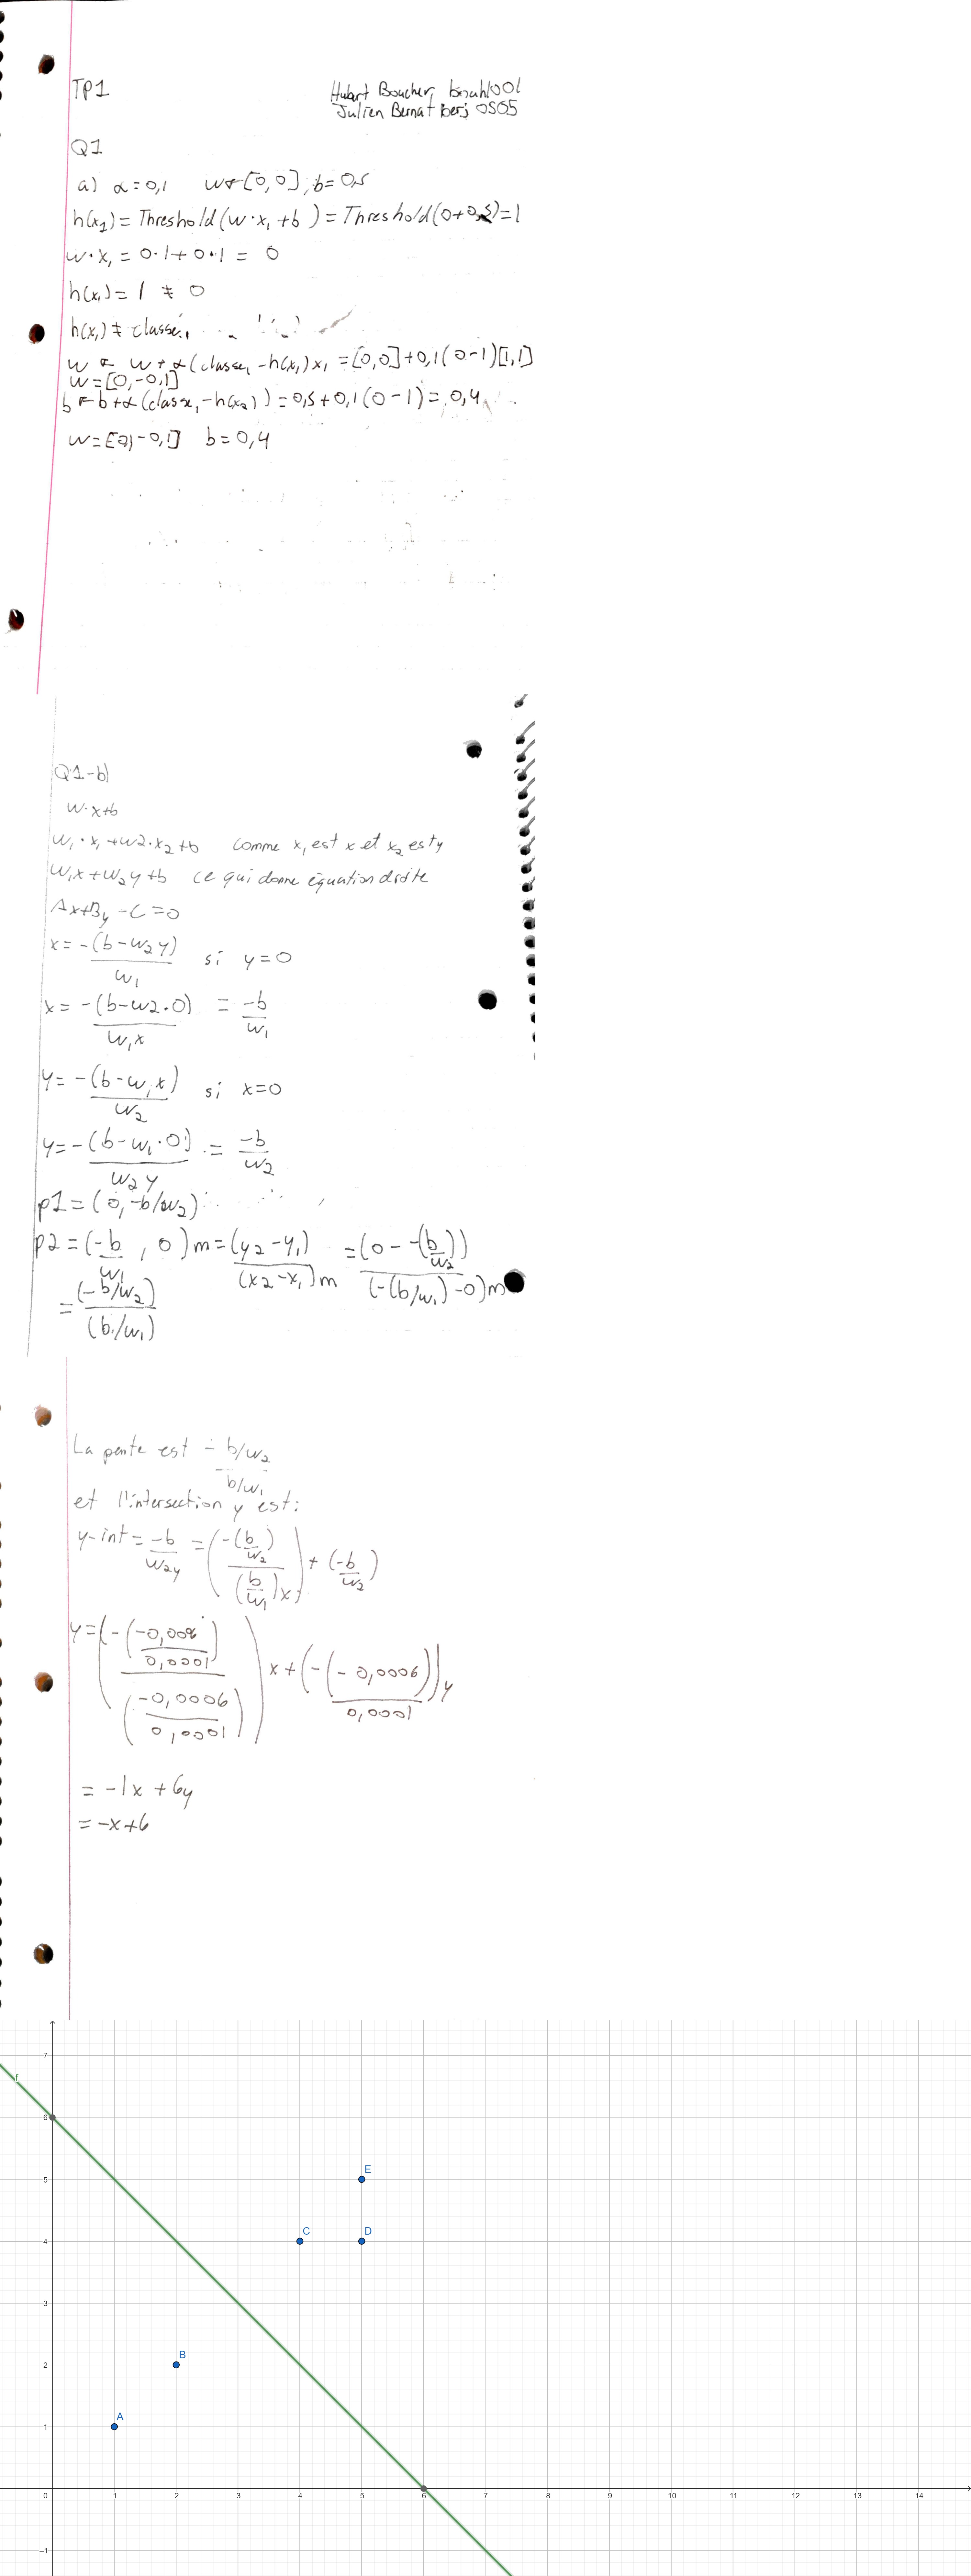 TP1
Hubert Boucher,
Julien Bernat
Q1
a) α=0,1 w←[0,0], b=0,5
h(x₁) = Threshold(w·x₁+b) = Threshold(0+0,5)=1
w·x₁ = 0·1+0·1 = 0
h(x₁) = 1 ≠ 0
h(x₁) ≠ classe₁
w ← w + α(classe₁-h(x₁))x₁ = [0,0]+0,1(0-1)[1,1]
w=[0,-0,1]
b←b+α(classe,-h(x₂)) = 0,5+0,1(0-1) = 0,4
w=[0,-0,1] b=0,4
Q1-b)
w·x+b
w₁·x₁+w2·x₂+b comme x₁ est x et x₂ est y
w₁x+w₂y+b ce qui donne équation droite
Ax+By-C=0
x = -(b-w₂y)/w₁ si y=0
x = -(b-w2·0)/w₁x = -b/w₁
y = -(b-w₁x)/w₂ si x=0
y = -(b-w₁·0)/w₂y = -b/w₂
p1=(0,-b/w₂)
p2=(-b/w₁, 0) m=(y₂-y₁)/(x₂-x₁)m =(0--(b/w₂))/(-(b/w₁)-0)m
= (-b/w₂)/(b/w₁)
La pente est - b/w₂ / b/w₁
et l'intersection y est:
y-int = -b/w₂y = (-(b/w₂)/(b/w₁)x) + (-b/w₂)
y=(-(-0,006/0,0001)/(-0,0006/0,0001))x+(-(-0,0006)/0,0001)y
= -1x + 6y
= -x+6
f
7
6
5
4
3
2
1
-1
E
C
D
B
A
0 1 2 3 4 5 6 7 8 9 10 11 12 13 14